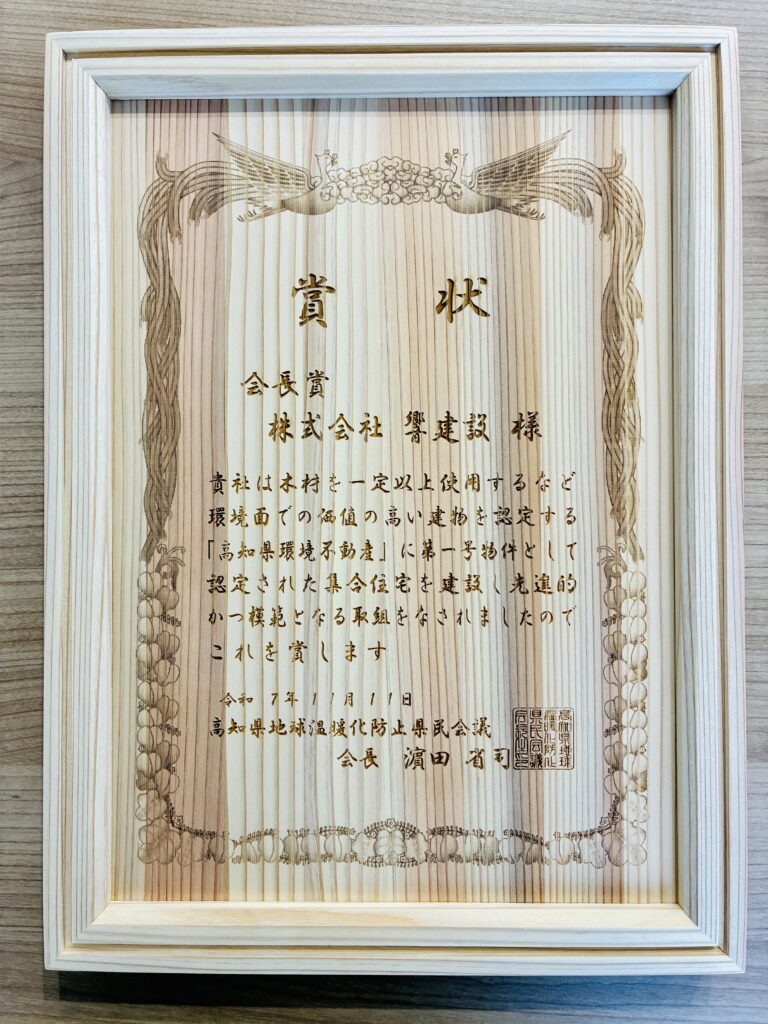 賞状
会長賞
株式会社 響建設 様
貴社は木材を一定以上使用するなど
環境面での価値の高い建物を認定する
「高知県環境不動産」に第一号物件として
認定された集合住宅を建設し先進的
かつ模範となる取組をなされましたので
これを賞します
令和7年11月11日
高知県地球温暖化防止県民会議
会長 濵田 省司
高知県地球
温暖化防止
県民会議
会長之印